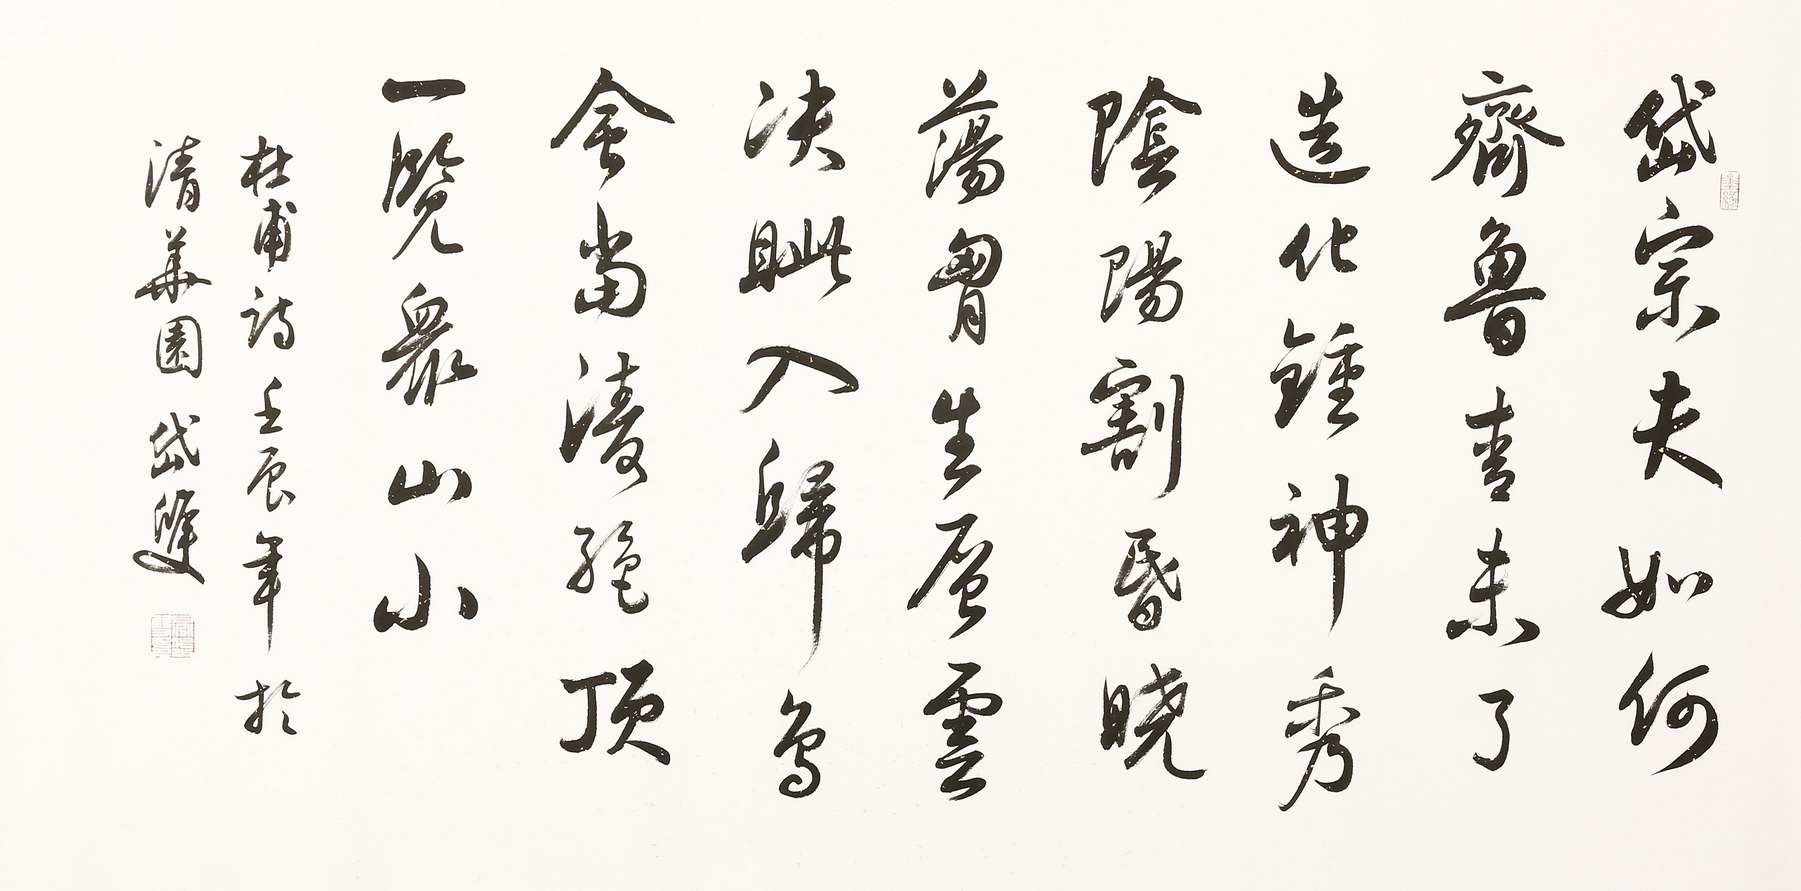 岱宗夫如何
齊魯青未了
造化鍾神秀
陰陽割昏曉
蕩胷生層雲
決眦入歸鳥
會當凌絕頂
一覽眾山小
杜甫詩 壬辰年 於
清華園 岱